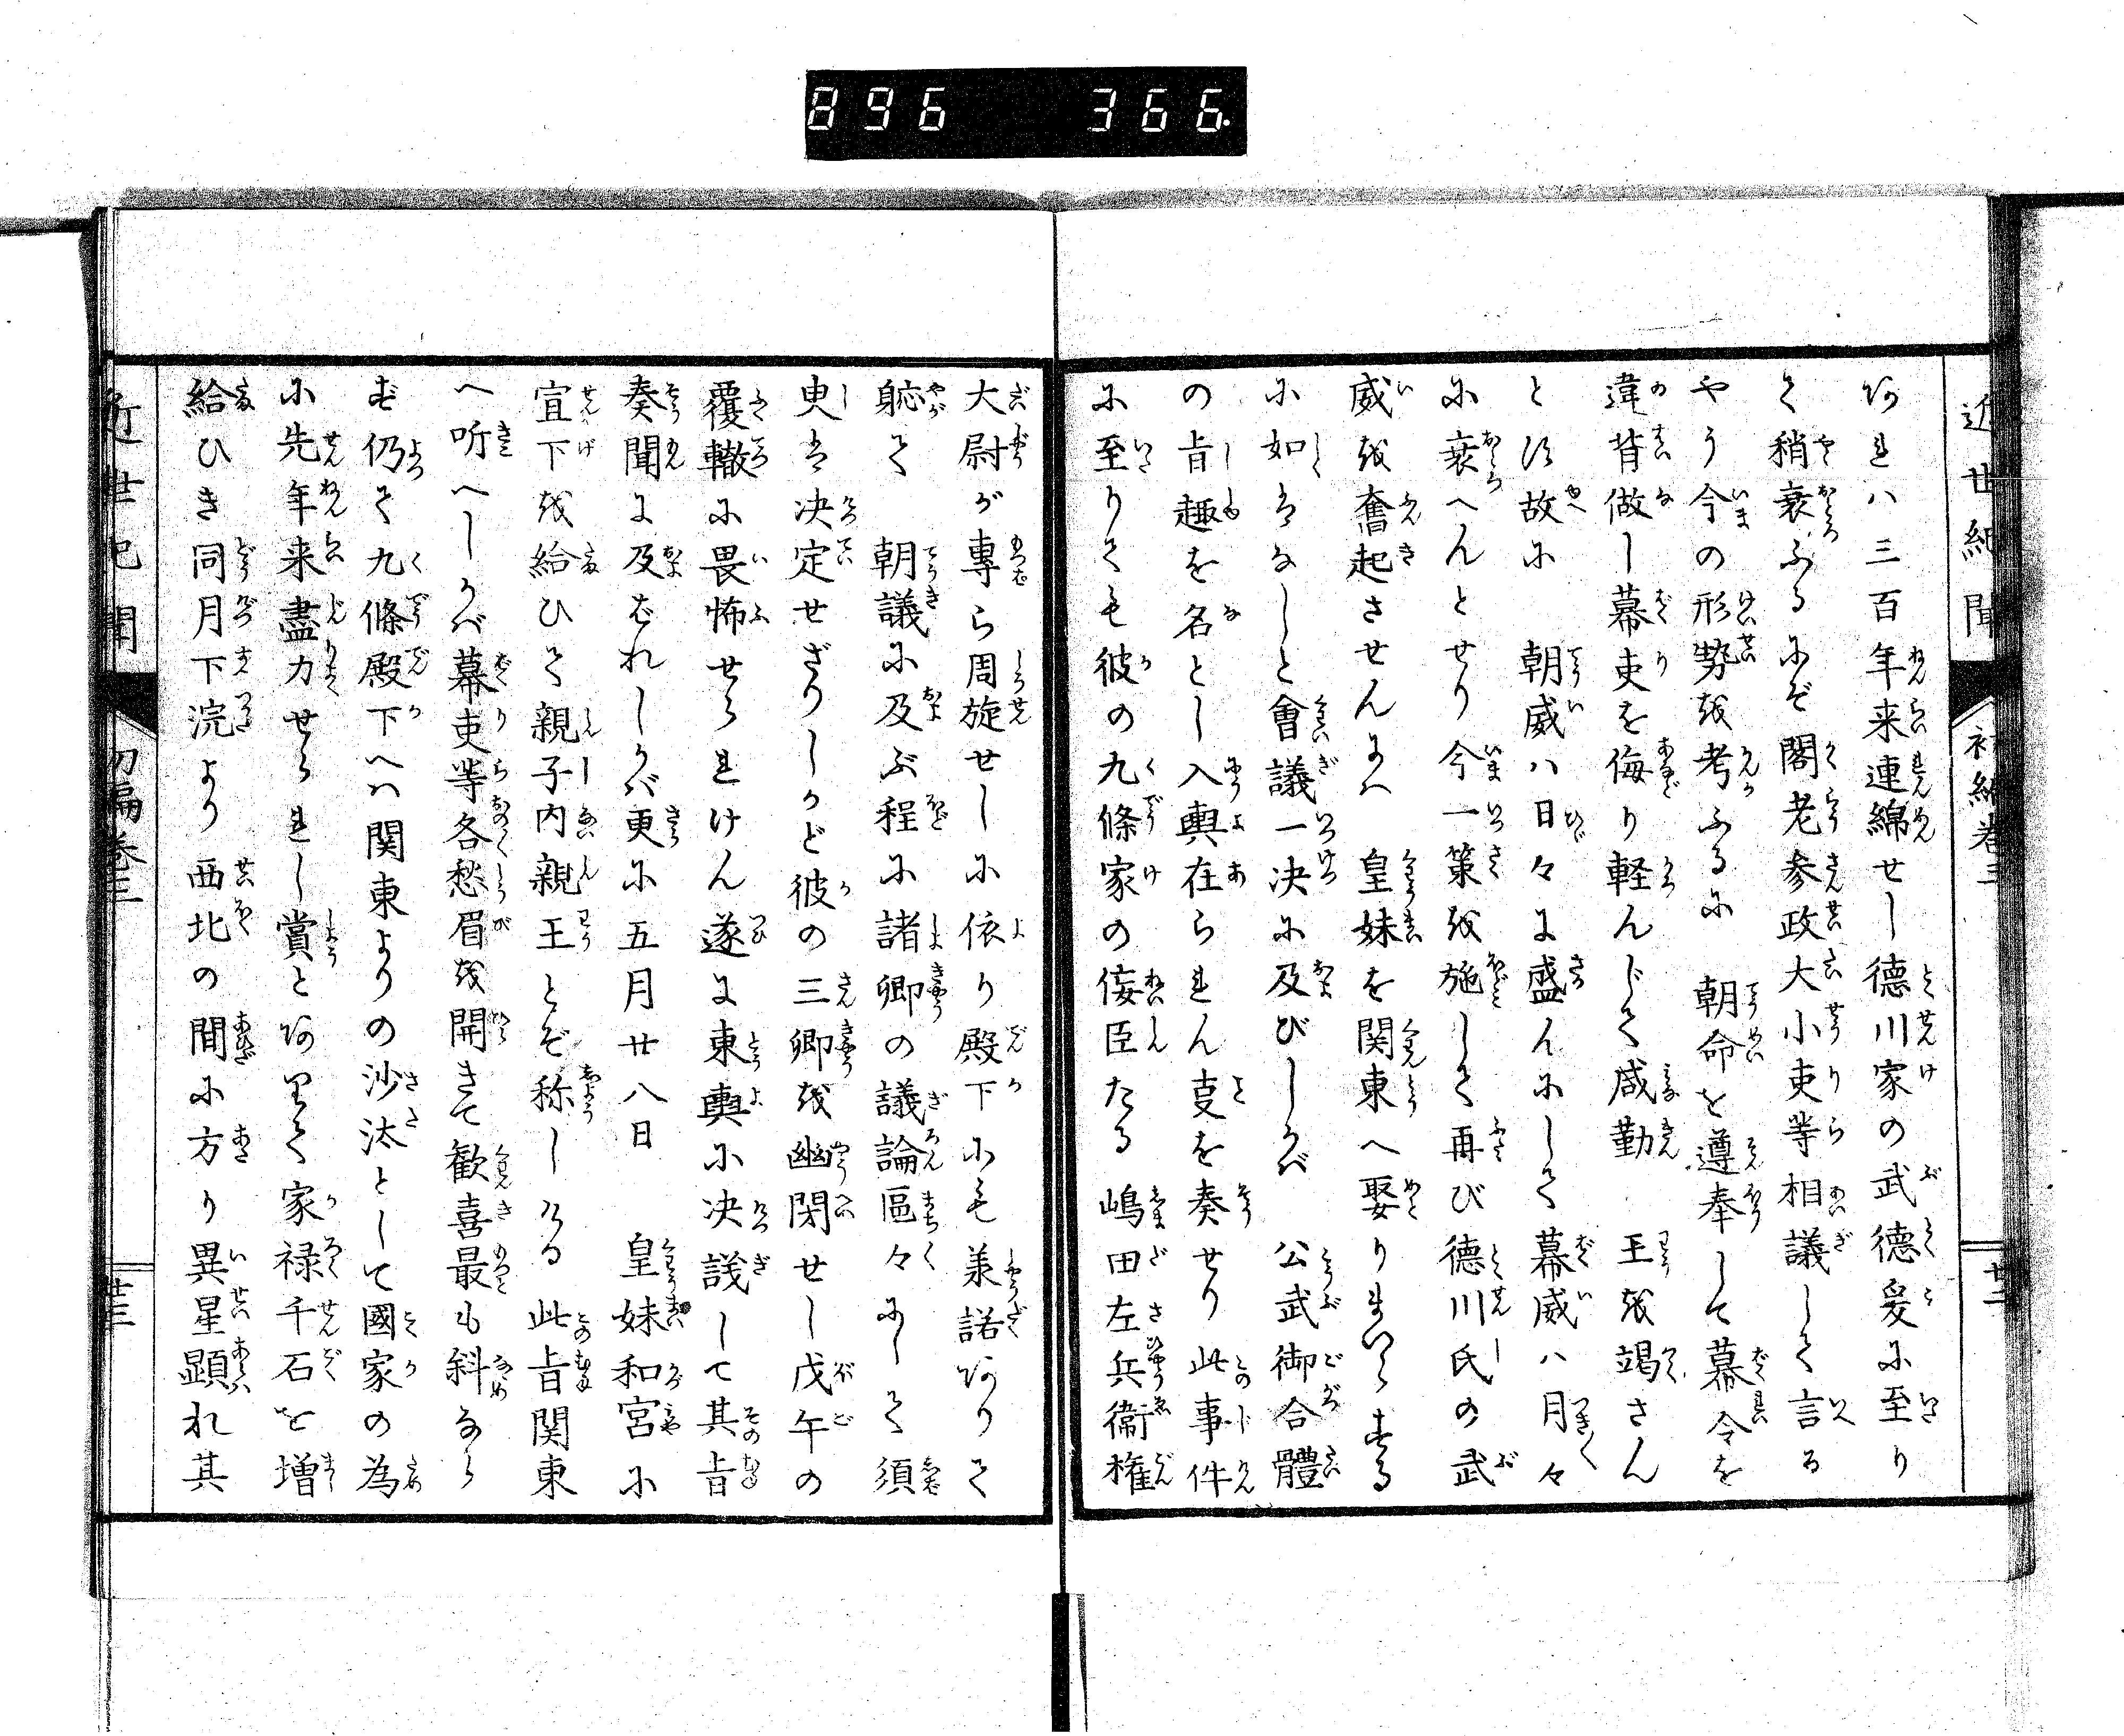 896 366
近世紀聞 初編巻三 廿二
あれハ三百年来連綿せし徳川家の武徳爰に至り
て稍衰ふるにぞ閣老参政大小吏等相議して言る
やう今の形勢を考ふるに 朝命を遵奉して幕令を
違背做し幕吏を侮り軽んじて咸勤 王を竭さん
とす故に 朝威ハ日々に盛んにして幕威ハ月々
に衰へんとせり今一策を施して再び徳川氏の武
威を奮起させんにハ 皇妹を関東へ娶りまゐらする
に如はなしと會議一决に及びしかバ 公武御合體
の旨趣を名とし入輿在られん叓を奏せり此事件
に至りても彼の九條家の侫臣たる嶋田左兵衞権
大尉が専ら周旋せしに依り殿下にも兼諾ありて
躮て 朝議に及ぶ程に諸卿の議論區々にして須
臾は决定せざりしかど彼の三卿を幽閉せし戊午の
覆轍に畏怖せられけん遂に東輿に决議して其旨
奏聞に及ばれしかバ更に五月廿八日 皇妹和宮に
宣下を給ひて親子内親王とぞ称しける此旨関東
へ听へしかバ幕吏等各愁眉を開きて歓喜最も斜なら
ず仍て九條殿下へハ関東よりの沙汰として國家の為
に先年来盡力せられし賞とありて家禄千石を増
給ひき同月下浣より西北の間に方り異星顕れ其
近世紀聞 初編巻三 廿三